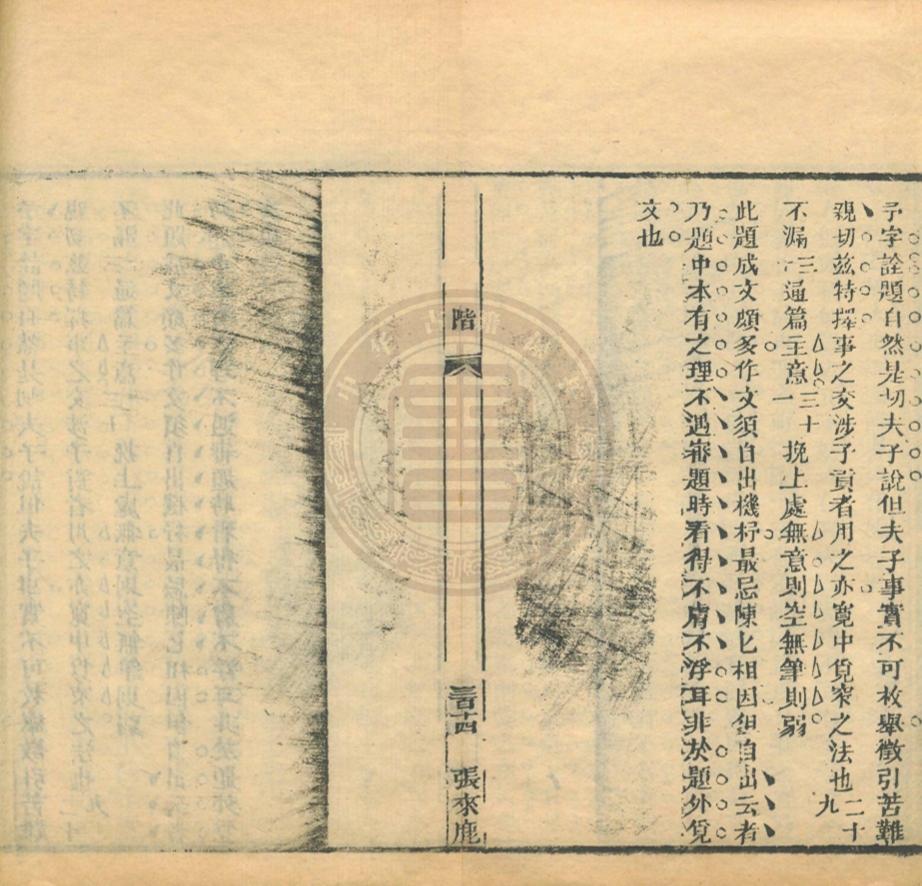 予字詮題自然是切夫子說但夫子事實不可枚舉徵引苦難
親切茲特擇事之交涉子貢者用之亦寬中覓窄之法也二十九
不漏三十通篇主意三十一挽上處無意則空無筆則弱
此題成文頗多作文須自出機杼最忌陳匕相因但自出云者
乃題中本有之理不過審題時看得不膚不浮耳非於題外覓
文也
階
張來